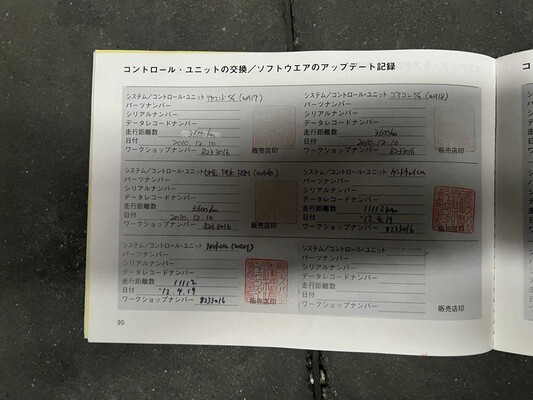 コントロール・ユニットの交換/ソフトウエアのアップデート記録
システム/コントロール・ユニット (WA17)
パーツナンバー
シリアルナンバー
データレコードナンバー
走行距離数 3600km
日付 2010.12.10
ワークショップナンバー 8233016 販売店印
システム/コントロール・ユニット エアコン (WA18)
パーツナンバー
シリアルナンバー
データレコードナンバー
走行距離数 3600km
日付 2010.12.10
ワークショップナンバー 8233016 販売店印
システム/コントロール・ユニット
パーツナンバー
シリアルナンバー
データレコードナンバー
走行距離数 3600km
日付 2010.12.10
ワークショップナンバー 8233016 販売店印
システム/コントロール・ユニット
パーツナンバー
シリアルナンバー
データレコードナンバー
走行距離数 11112km
日付 '13.4.19
ワークショップナンバー 8233016 販売店印
システム/コントロール・ユニット
パーツナンバー
シリアルナンバー
データレコードナンバー
走行距離数 11112
日付 '13.4.19
ワークショップナンバー 8233016 販売店印
システム/コントロール・ユニット
パーツナンバー
シリアルナンバー
データレコードナンバー
走行距離数
日付
ワークショップナンバー 販売店印
95
コ